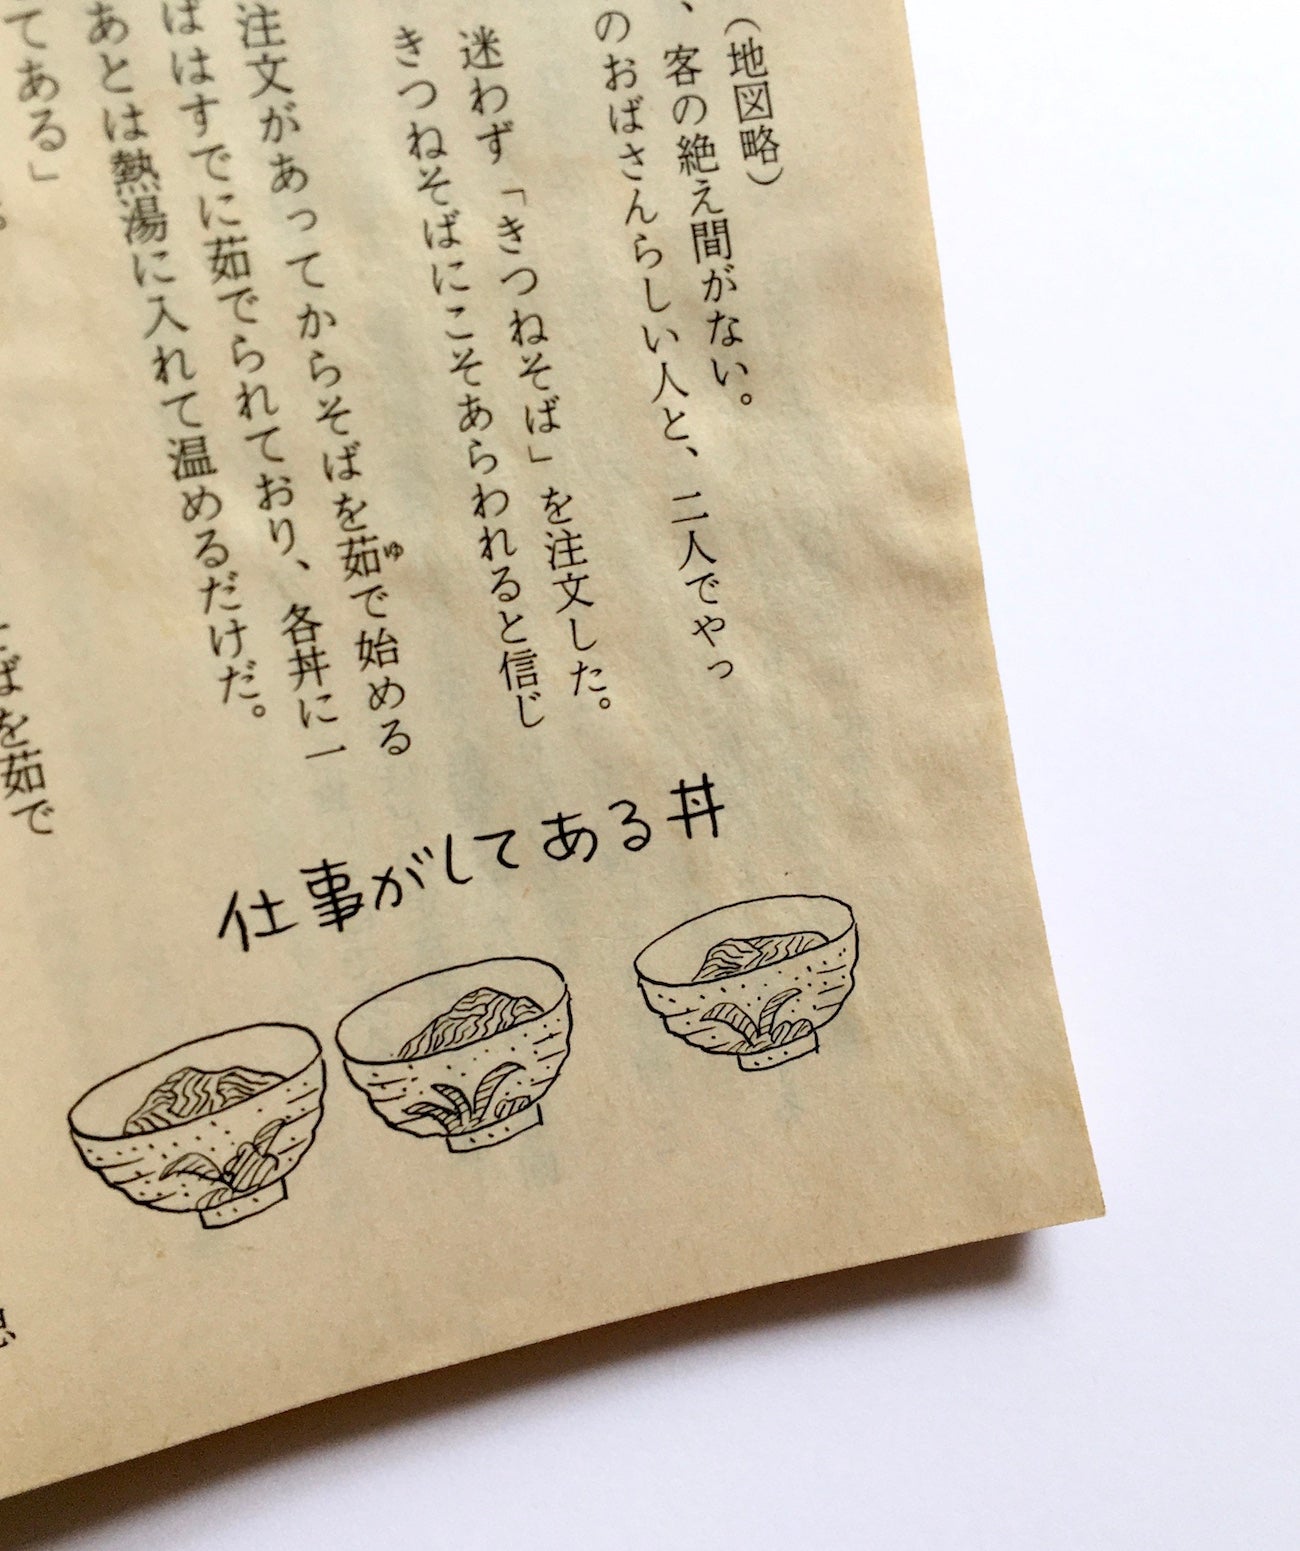 （地図略）
、客の絶え間がない。
のおばさんらしい人と、二人でやっ
迷わず「きつねそば」を注文した。
きつねそばにこそあらわれると信じ
注文があってからそばを茹で始める
ゆ
ばはすでに茹でられており、各丼に一
あとは熱湯に入れて温めるだけだ。
てある」
ばを茹で
仕事がしてある丼